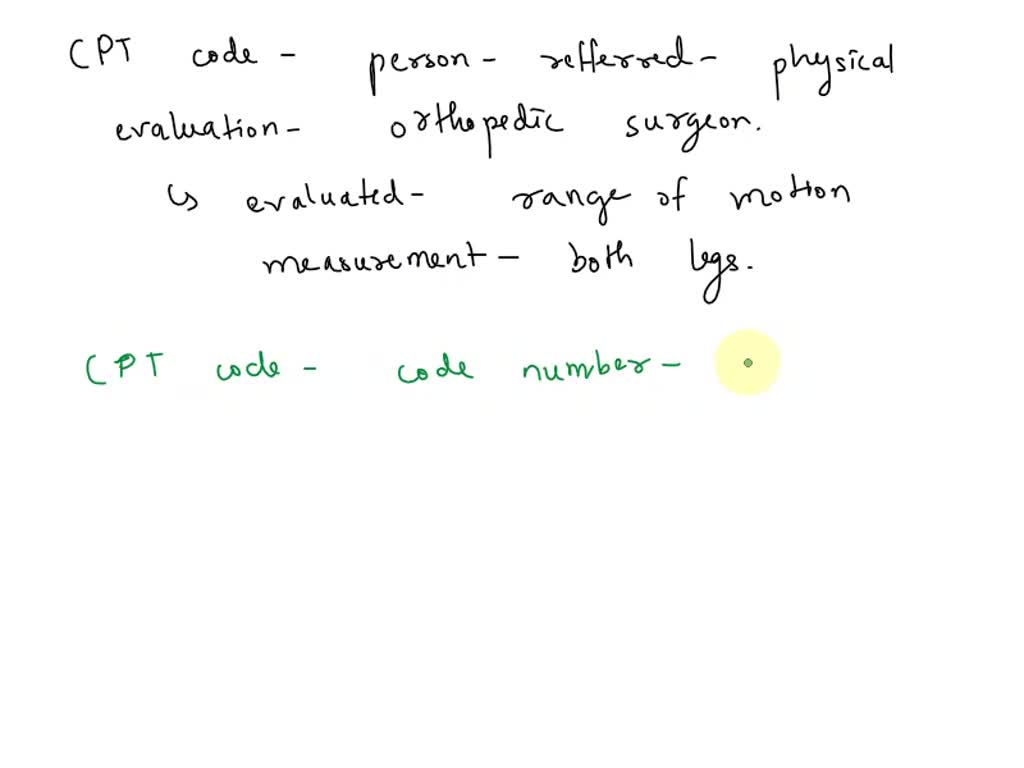 CPT code - person - refferred - physical
evaluation - orthopedic surgeon.
↳ evaluated - range of motion
measurement - both legs.
CPT code - code number -